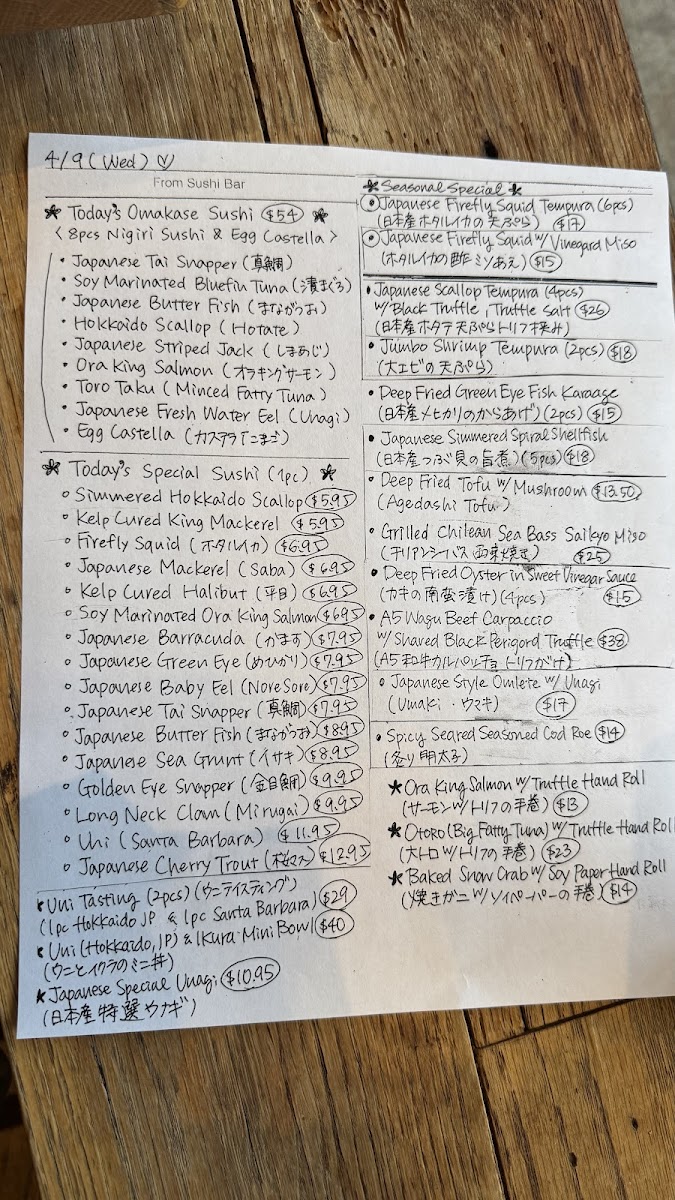 4/9 (Wed) ♡
From Sushi Bar
★ Today's Omakase Sushi $54 ★
< 8pcs Nigiri Sushi & Egg Castella >
・Japanese Tai Snapper (真鯛)
・Soy Marinated Bluefin Tuna (漬まぐろ)
・Japanese Butter Fish (まながつお)
・Hokkaido Scallop (Hotate)
・Japanese Striped Jack (しまあじ)
・Ora King Salmon (オラキングサーモン)
・Toro Taku (Minced Fatty Tuna)
・Japanese Fresh Water Eel (Unagi)
・Egg Castella (カステラたまご)
★ Today's Special Sushi (1pc) ★
○ Simmered Hokkaido Scallop $5.95
○ Kelp Cured King Mackerel $5.95
○ Firefly Squid (ホタルイカ) $6.95
○ Japanese Mackerel (Saba) $6.95
○ Kelp Cured Halibut (平目) $6.95
○ Soy Marinated Ora King Salmon $6.95
○ Japanese Barracuda (かます) $7.95
○ Japanese Green Eye (めひかり) $7.95
○ Japanese Baby Eel (NoreSore) $7.95
○ Japanese Tai Snapper (真鯛) $7.95
○ Japanese Butter Fish (まながつお) $8.95
○ Japanese Sea Grunt (イサキ) $8.95
○ Golden Eye Snapper (金目鯛) $9.95
○ Long Neck Clam (Mirugai) $9.95
○ Uni (Santa Barbara) $11.95
○ Japanese Cherry Trout (桜マス) $12.95
★ Uni Tasting (2pcs) (ウニテイスティング)
(1pc Hokkaido JP & 1pc Santa Barbara) $29
★ Uni (Hokkaido, JP) & Ikura Mini Bowl $40
(ウニとイクラのミニ丼)
★ Japanese Special Unagi $10.95
(日本産特選ウナギ)
★ Seasonal Special ★
Japanese Firefly Squid Tempura (6pcs)
(日本産ホタルイカの天ぷら) $17
Japanese Firefly Squid w/ Vinegard Miso
(ホタルイカの酢ミソあえ) $15
・Japanese Scallop Tempura (4pcs)
w/ Black Truffle, Truffle Salt $26
(日本産ホタテ天ぷらトリフ挟み)
・Jumbo Shrimp Tempura (2pcs) $18
(大エビの天ぷら)
・Deep Fried Green Eye Fish Karaage
(日本産メヒカリのからあげ) (2pcs) $15
・Japanese Simmered Spiral Shellfish
(日本産つぶ貝の旨煮) (5pcs) $18
・Deep Fried Tofu w/ Mushroom $13.50
(Agedashi Tofu)
・Grilled Chilean Sea Bass Saikyo Miso
(チリアンシーバス西京焼き) $25
・Deep Fried Oyster in Sweet Vinegar Sauce
(カキの南蛮漬け) (4pcs) $15
・A5 Wagu Beef Carpaccio
w/ Shaved Black Perigord Truffle $38
(A5和牛カルパッチョ トリフがけ)
・Japanese Style Omlete w/ Unagi
(Umaki・ウマキ) $17
・Spicy Seared Seasoned Cod Roe $14
(炙り明太子)
★ Ora King Salmon w/ Truffle Hand Roll
(サーモンw/トリフの手巻) $13
★ Otoro (Big Fatty Tuna) w/ Truffle Hand Roll
(大トロw/トリフの手巻) $23
★ Baked Snow Crab w/ Soy Paper Hand Roll
(焼きガニw/ソイペーパーの手巻) $14